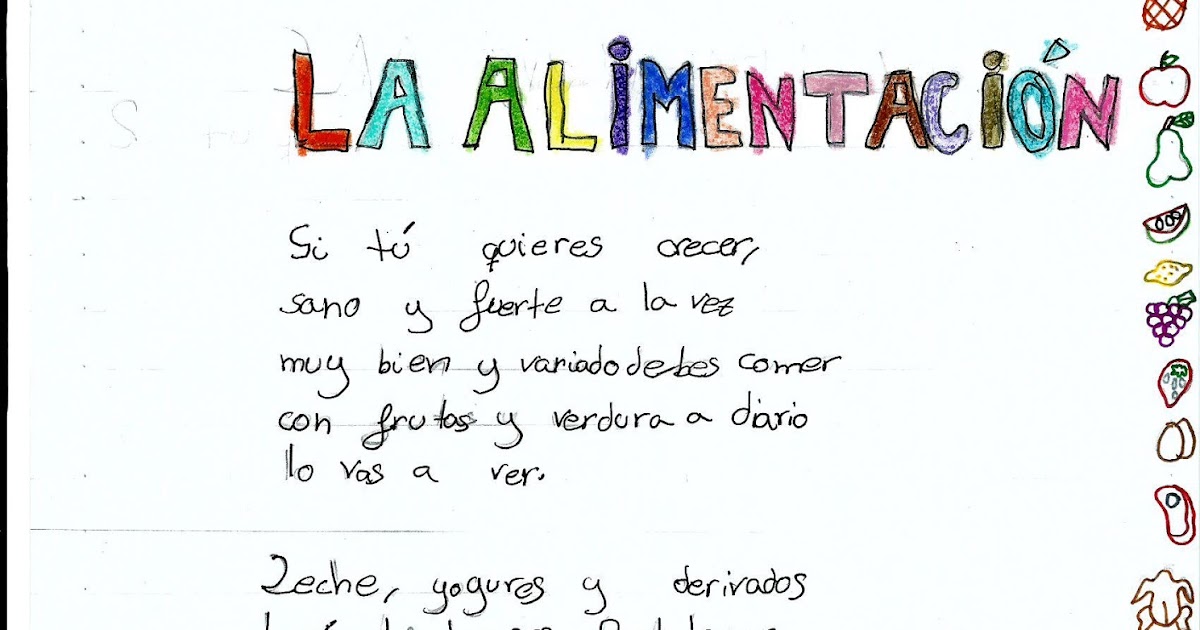 LA ALIMENTACIÓN
Si tú quieres crecer,
sano y fuerte a la vez
muy bien y variado debes comer
con frutas y verdura a diario
lo vas a ver.
Leche, yogures y derivados